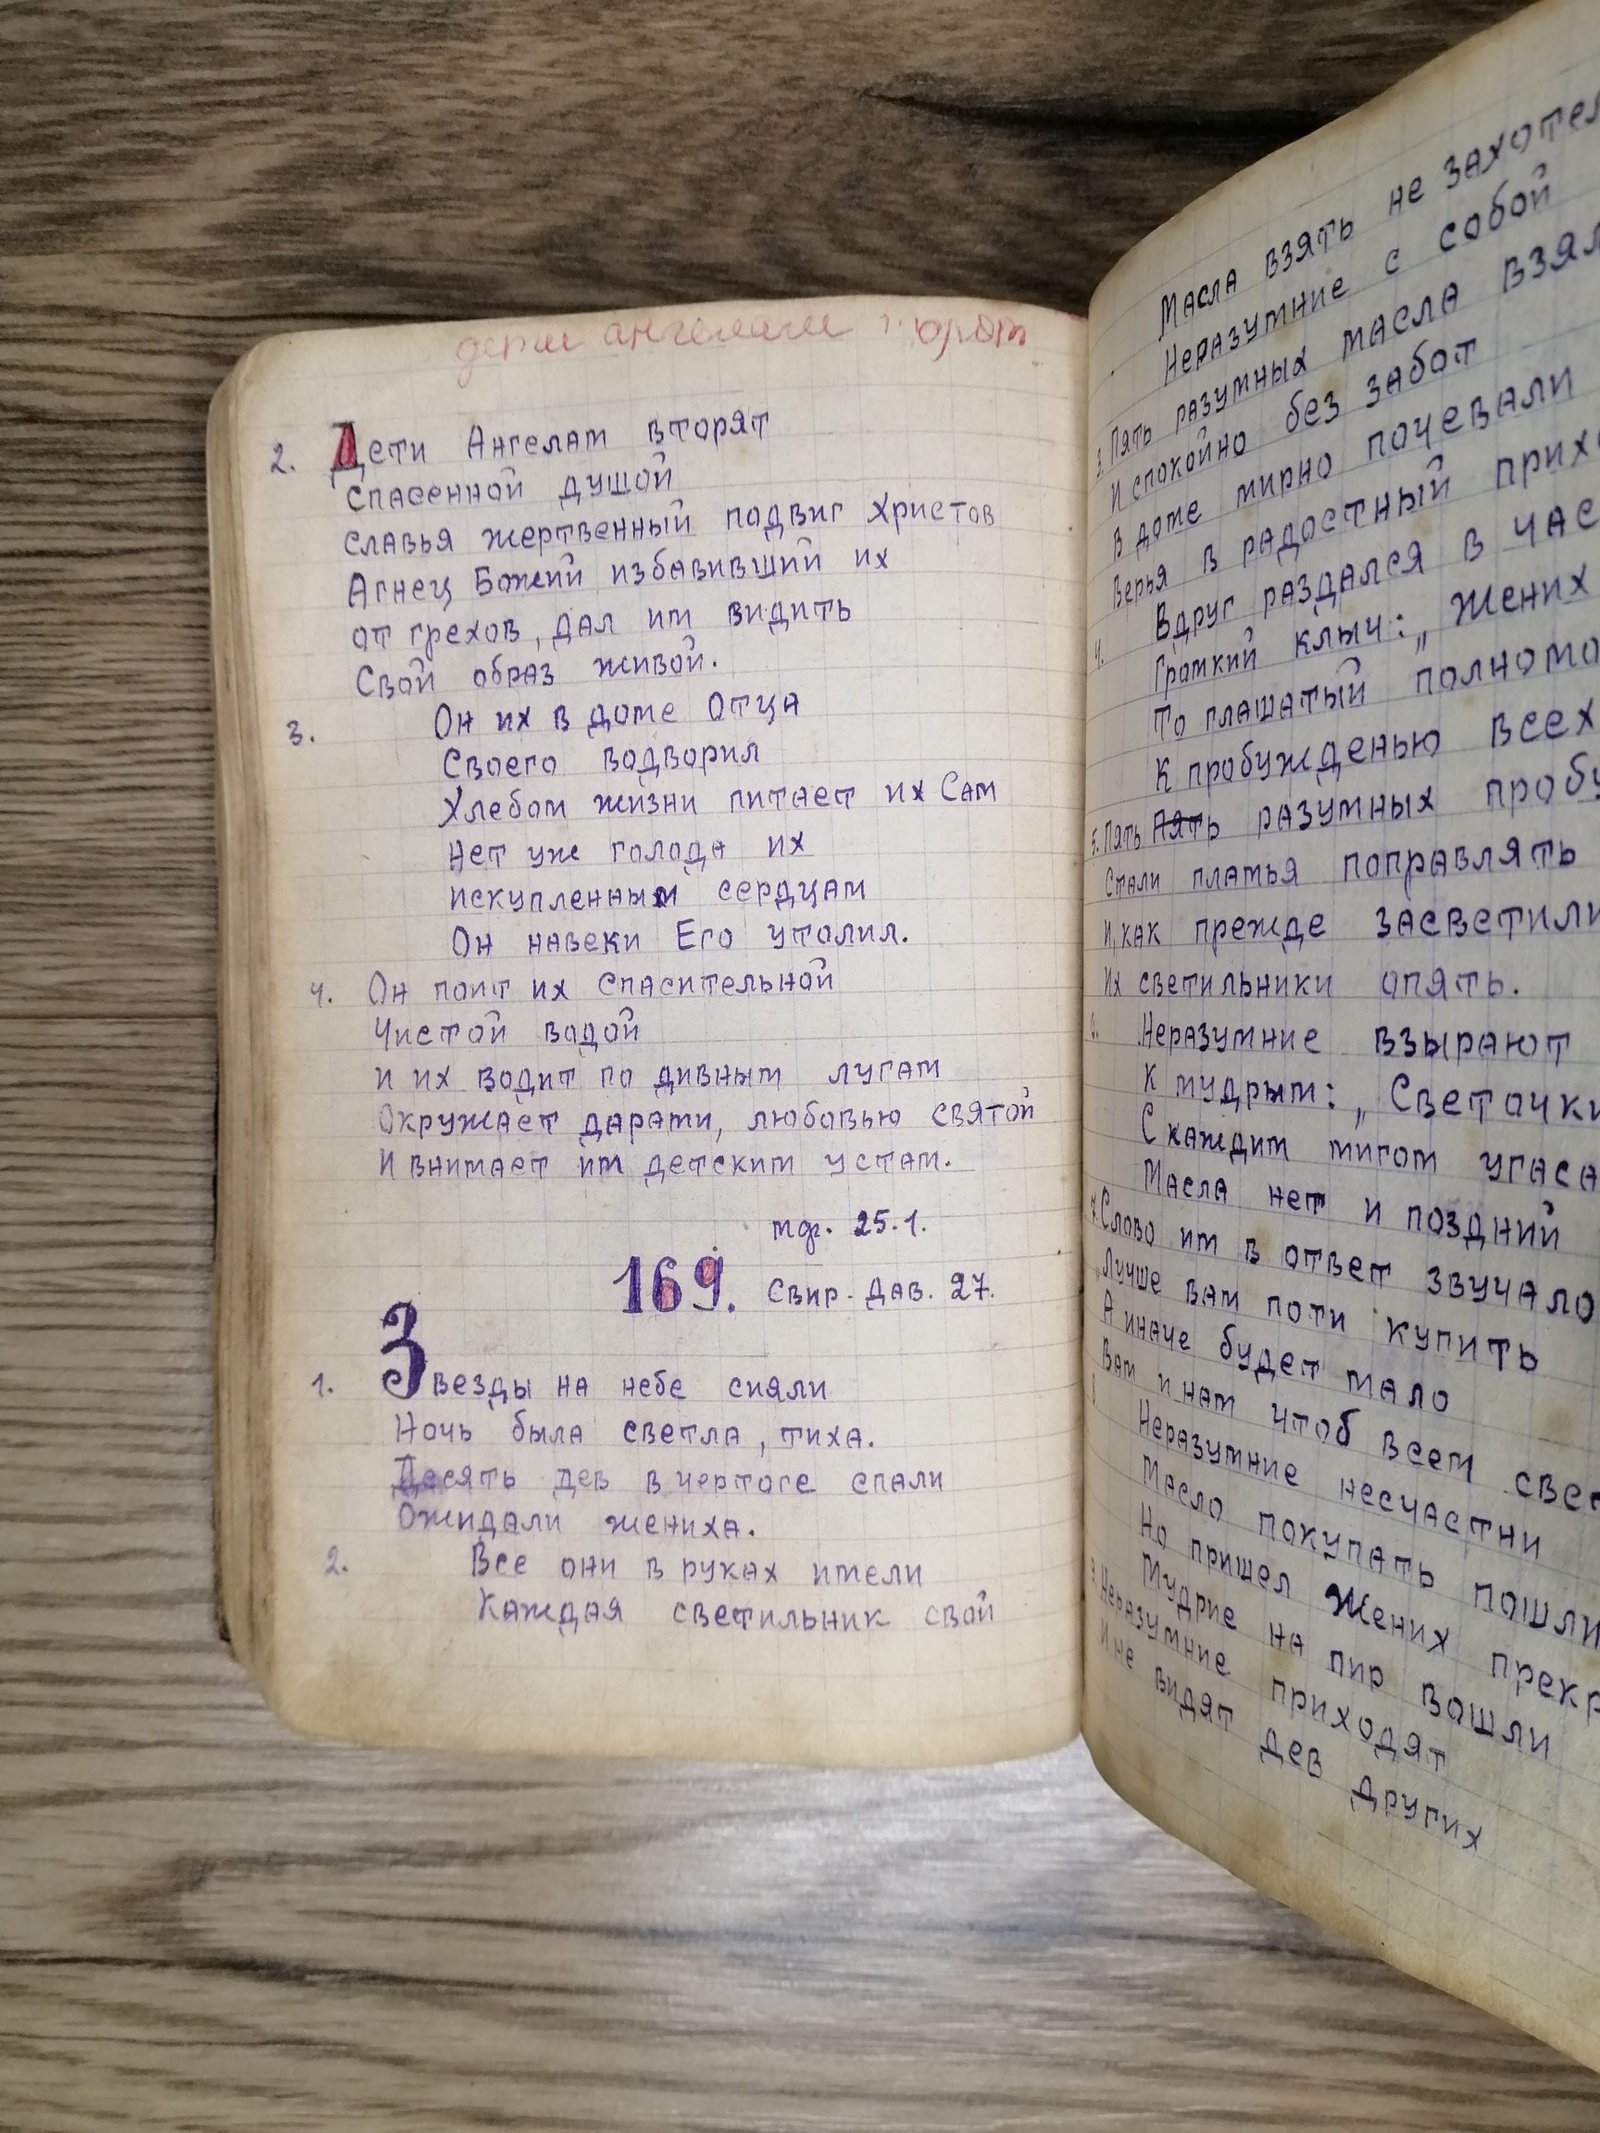 дети ангелами
2. Дети Ангелам вторят
спасенной душой
славья жертвенный подвиг христов
Агнец Божий избавивший их
от грехов, дал им видить
Свой образ живой.
3. Он их в доме отца
Своего водворил
Хлебом жизни питает их Сам
Нет уж голода их
искупленным сердцам
Он навеки Его утолил.
4. Он поит их спасительной
Чистой водой
и их водит по дивным лугам
Окружает дарами, любовью святой
И внимает им детским устам.
мф. 25.1.
169. Свир. Дав. 27.
1. Звезды на небе сияли
Ночь была светла, тиха.
Десять дев в чертоге спали
Ожидали жениха.
2. Все они в руках имели
Каждая светильник свой
Масла взять не захотел
Неразумние с собой
3. Пять разумных масла взял
И спокойно без забот
В доме мирно почевали
Верья в радостный прихо
4. Вдруг раздался в час
Громкий клыч: „Жених
То глашатый полномо
К пробужденью всех
5. Пять Пять разумных пробу
Стали платья поправлять
И, как прежде засветили
Их светильники опять.
6. Неразумние взырают
К мудрым: „Светочки
С каждим мигом угаса
Масла нет и поздний
7. Слово им в ответ звучало
„Лучше вам поти купить
А иначе будет мало
Вам и нам чтоб всем свет
Неразумние несчастни
Масло покупать пошли
Но пришел Жених прекр
Мудрие на пир вошли
9. Неразумние приходят
И не видят дев других